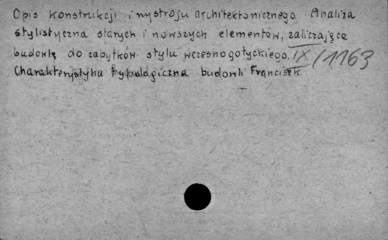 Opis konstrukcji i wystroju architektonicznego. Analiza
stylistyczna starych i nowszych elementów, zaliczające
budowlę do zabytków stylu wczesnogotyckiego. IX/1163
Charakterystyka typologiczna budowli Francisk.